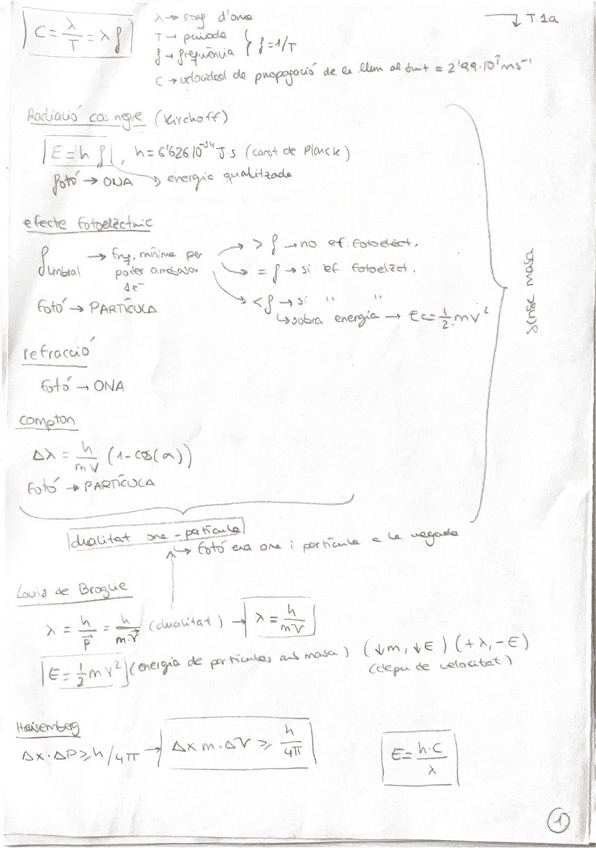 C = λ/T = λ f
λ → long d'ona
T → període
f → freqüència } f = 1/T
C → velocidad de propagació de la llum al buit = 2'99·10⁷ ms⁻¹
T. 1a
Radiació cos negre (Kirchoff)
E = h f , h = 6'626 10⁻³⁴ J s (const de Planck)
fotó → ONA → energia quantitzada
efecte fotoelèctric
f umbral → freq. mínima per poder arrencar 1e⁻
→ > f → no ef. fotoelèct.
→ = f → si ef fotoelèct.
→ < f → si " "
↳ sobra energia → Ec = 1/2 mv²
Fotó → PARTÍCULA
refracció
Fotó → ONA
Compton
Δλ = h/mv (1-cos(α))
Fotó → PARTÍCULA
sense masa
dualitat ona-partícula
↳ Fotó era ona i partícula a la vegada
Louis de Broglie
λ = h/p⃗ = h/m·v⃗ (dualitat) → λ = h/mv⃗
E = 1/2 m v² (energia de partícules amb masa) (↓m, ↓E) (+λ, -E)
(depen de velocitat)
Heisenberg
Δx·Δp ≥ h/4π → Δx m·Δv ≥ h/4π
E = h·c/λ
1